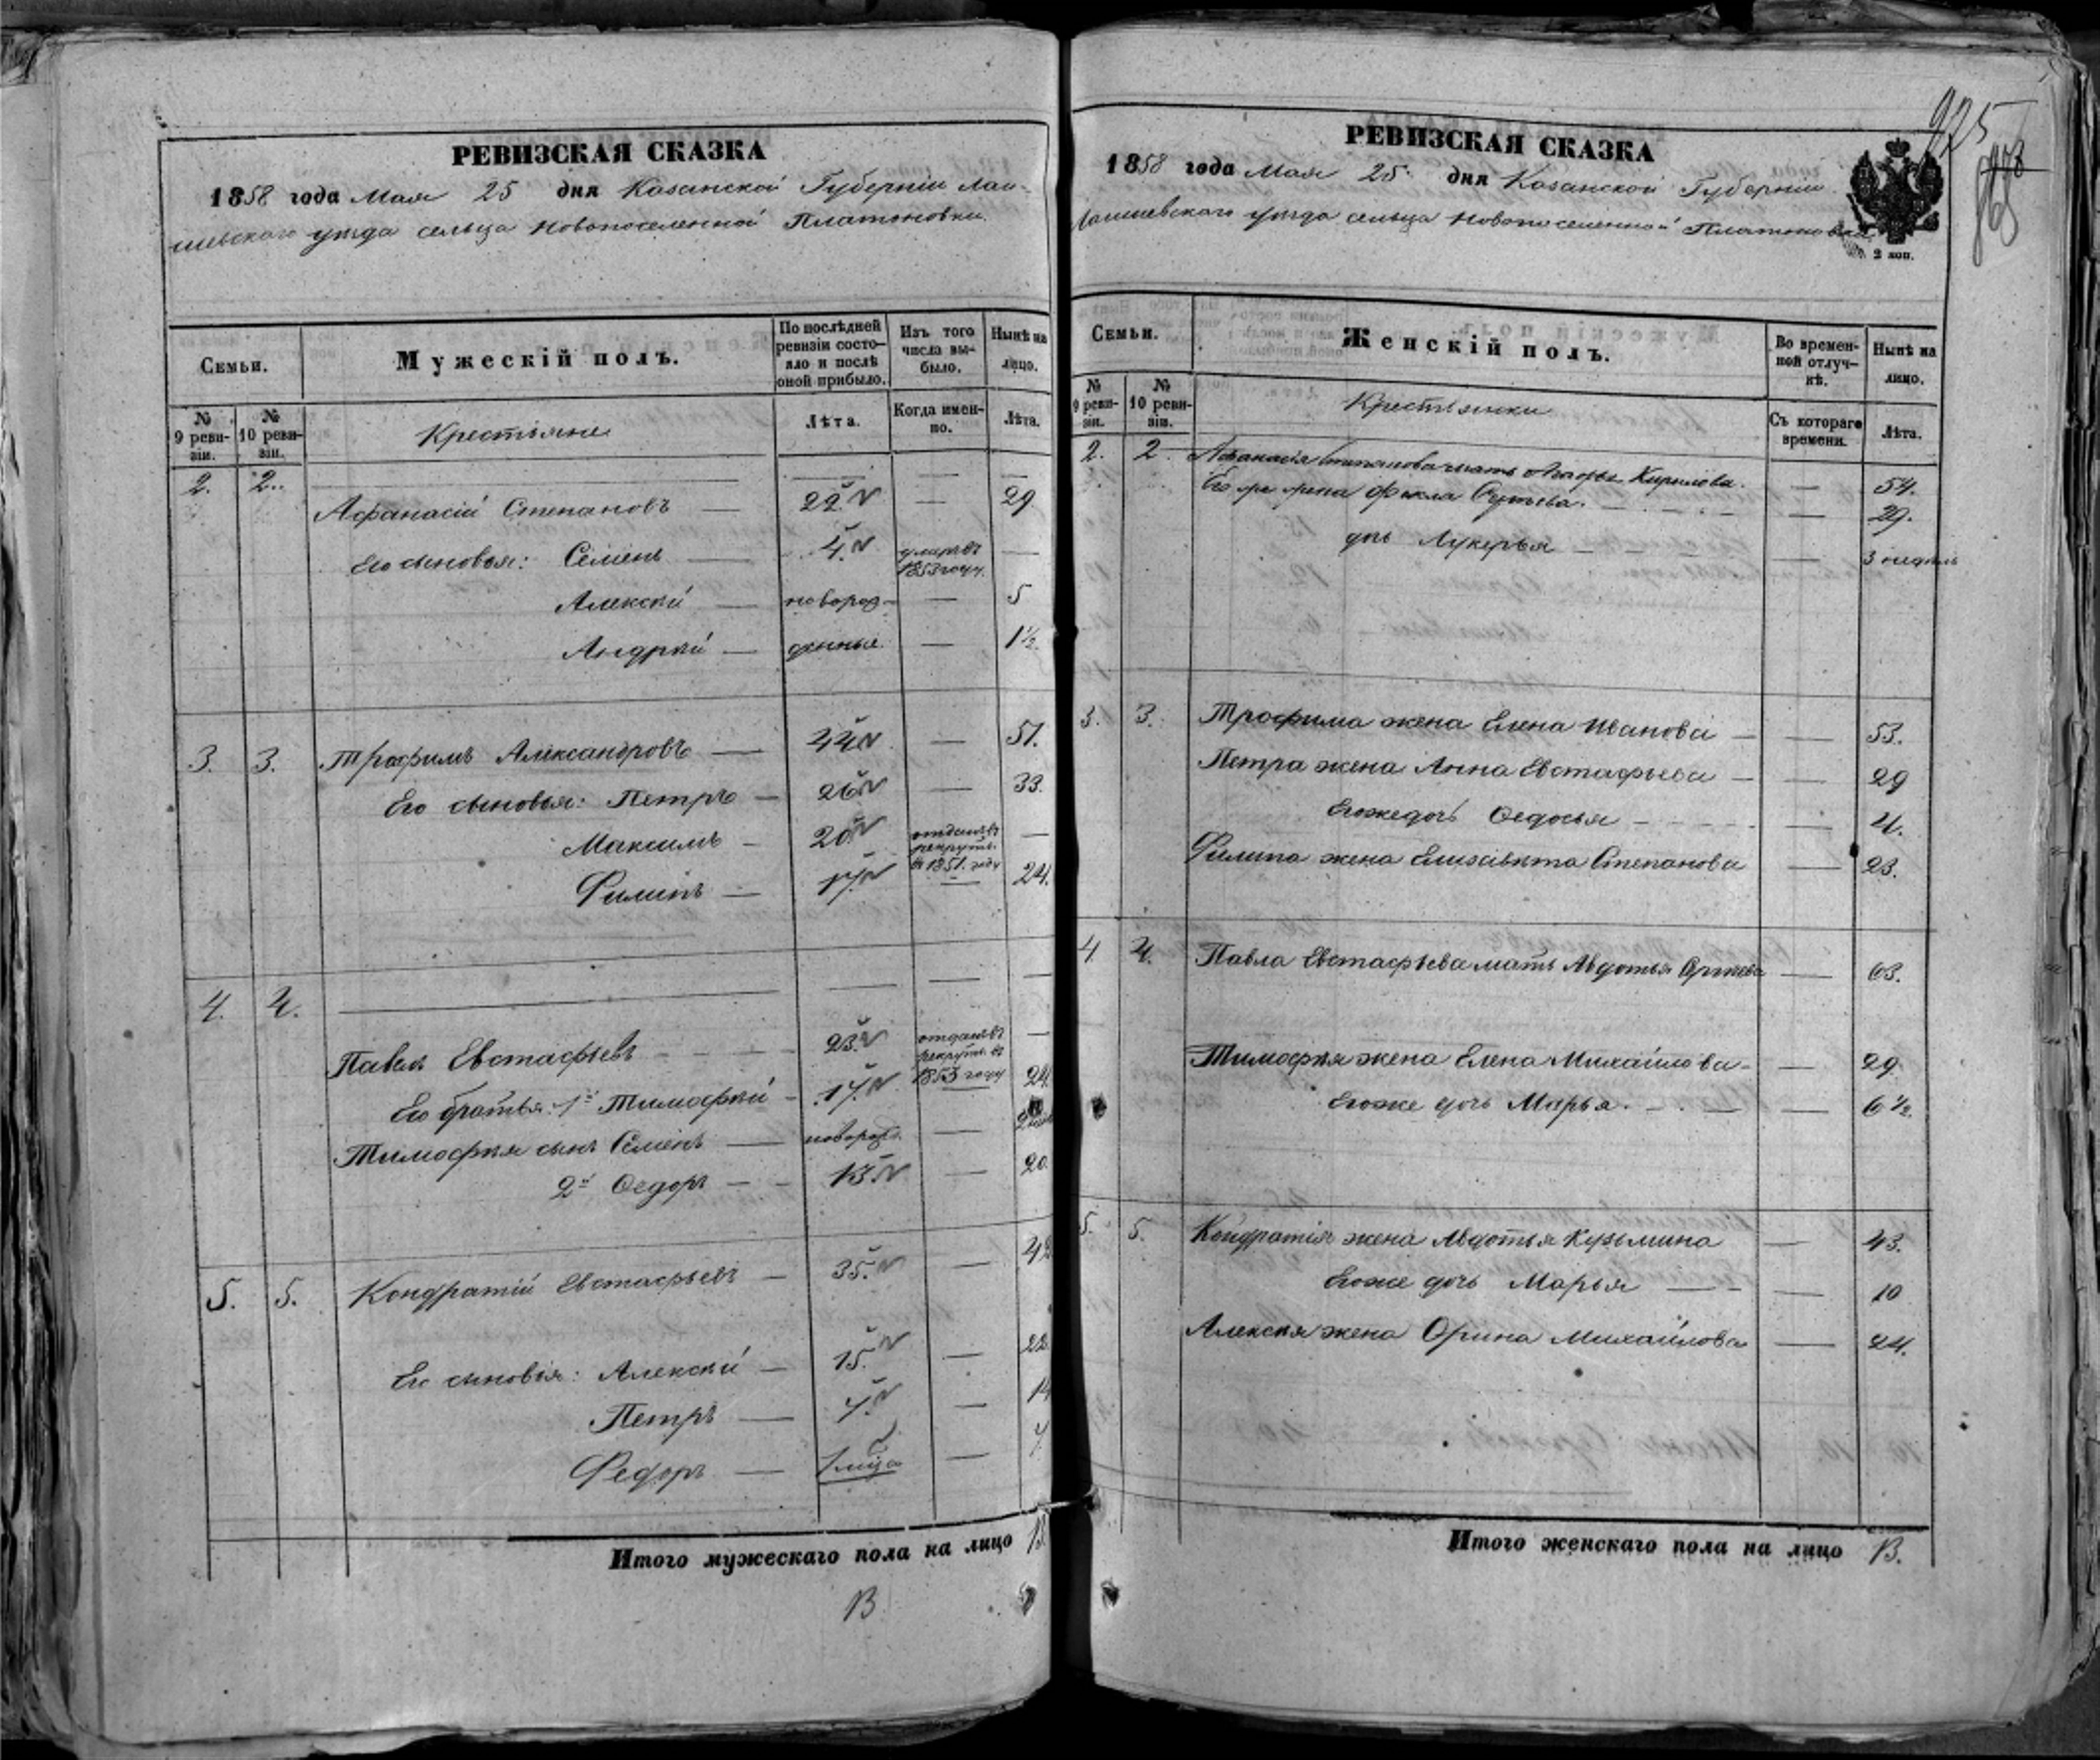 РЕВИЗСКАЯ СКАЗКА
1858 года Мая 25 дня Казанской Губерніи Лаи-
шевскаго уѣзда сельца Новопоселенной Платоновки.
Семьи.
Мужескій полъ.
По послѣдней ревизіи состояло и послѣ оной прибыло.
Изъ того числа выбыло.
Нынѣ на лицо.
№ 9 ревизіи.
№ 10 ревизіи.
Крестьяне
Лѣта.
Когда именно.
Лѣта.
2. 2.
Афанасій Степановъ — 22. — 29
Его сыновья: Семенъ — 4. умеръ въ 1853 году. —
Алексѣй — новорож- — 5
Андрей — денные — 1½.
3. 3. Трофимъ Александровъ — 44 — 51.
Его сыновья: Петръ — 26 — 33.
Максимъ — 20 отданъ въ рекруты въ 1851. году —
Филипъ — 17. — 24.
4. 4.
Павелъ Евстафьевъ 23. отданъ въ рекруты въ 1853 году —
Его братья: 1й Тимофѣй — 17. — 24.
Тимофея сынъ Семенъ — новорож. —
2й Ѳедоръ — 13. — 20.
5. 5. Кондратій Евстафьевъ — 35. —
Его сыновья: Алексѣй — 15. — 22
Петръ — 7. — 14
Федоръ — — 7
Итого мужескаго пола на лицо 13.
13
РЕВИЗСКАЯ СКАЗКА
1858 года Мая 25 дня Казанской Губерніи
Лаишевскаго уѣзда сельца Новопоселенной Платоновки
925
2 коп.
Семьи.
Женскій полъ.
Во временной отлучкѣ.
Нынѣ на лицо.
№ 9 ревизіи.
№ 10 ревизіи.
Крестьянки
Съ котораго времени.
Лѣта.
2. 2. Афанасія Степанова мать Кирилова. — 54.
Его же жена Фекла — 29.
дочь Лукерья — 3 недѣль
3. 3. Трофима жена Елена Иванова — 53.
Петра жена Анна Евстафьева — 29
Его же дочь Ѳедосья — 4.
Филипа жена Елизавѣта Степанова — 23.
4 4. Павла Евстафьева мать Авдотья — 63.
Тимофея жена Елена Михайлова — 29.
Его же дочь Марья. — 6½.
5. 5. Кондратія жена Авдотья Кузьмина — 43.
Его же дочь Марья — 10
Алексея жена Орина Михайлова — 24.
Итого женскаго пола на лицо 13.